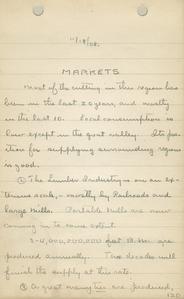 11/18/08.
MARKETS
Most of the cutting in this region has
been in the last 20 years, and mostly
in the last 10. Local consumption is
low except in the great valley. Its posi-
tion for supplying surrounding regions
is good.
① The Lumber Industry is on an ex-
tensive scale, - mostly by Railroads and
large Mills. Portable Mills are now
coming in to some extent.
3-4,000,000,000 feet B.M. are
produced annually. Two decades will
finish the supply at this rate.
② A great many ties are produced,